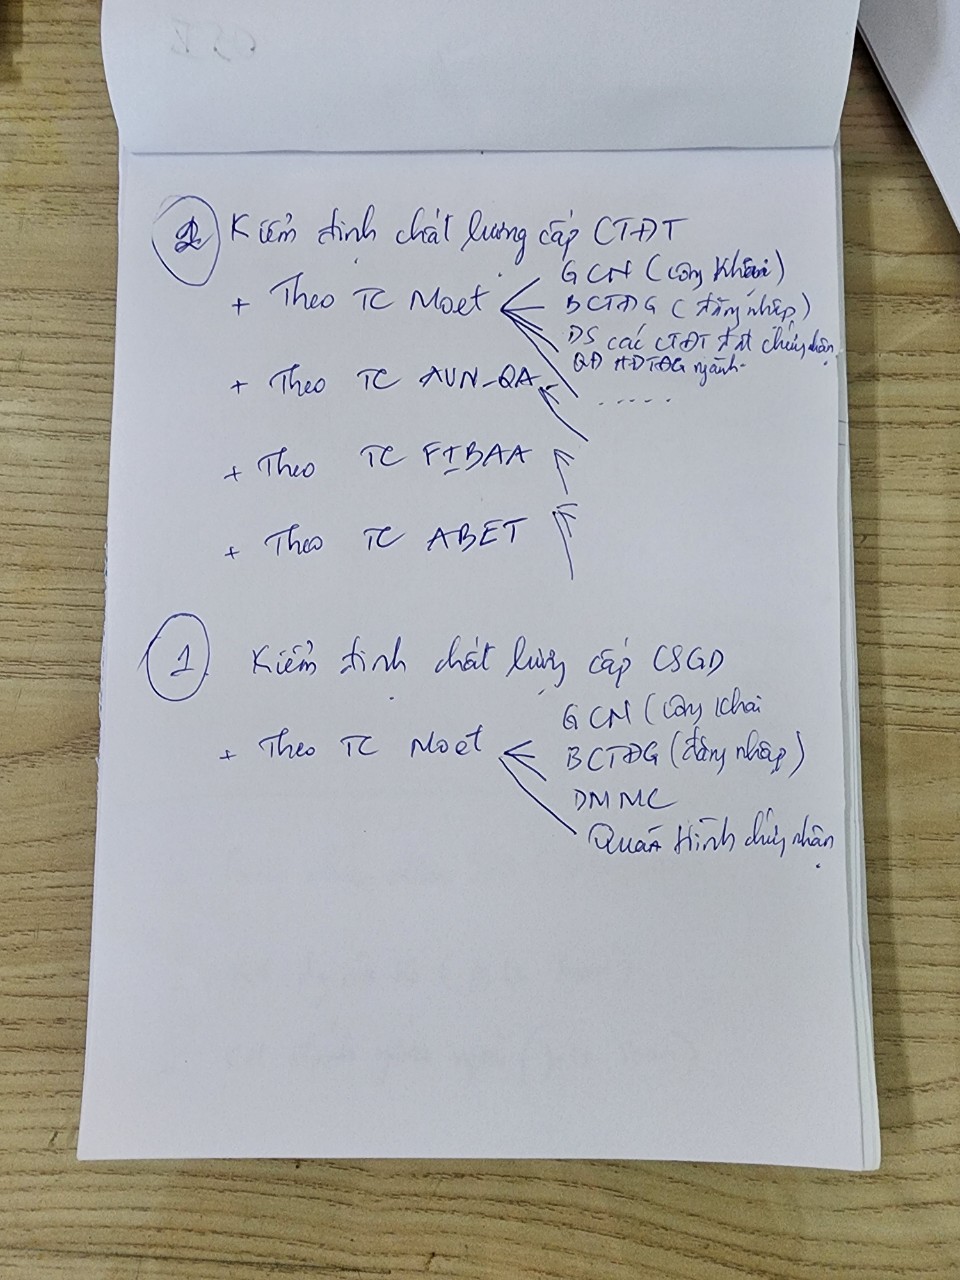 2 Kiểm định chất lượng cấp CTĐT
+ Theo TC Moet
GCN (công khai)
BCTĐG (đăng nhập)
DS các CTĐT đạt chứng nhận
QĐ HĐTĐG ngành
.....
+ Theo TC AUN-QA
+ Theo TC FIBAA
+ Theo TC ABET
1 Kiểm định chất lượng cấp CSGD
+ Theo TC Moet
GCN (công khai
BCTĐG (đăng nhập)
DMMC
Quá trình chứng nhận